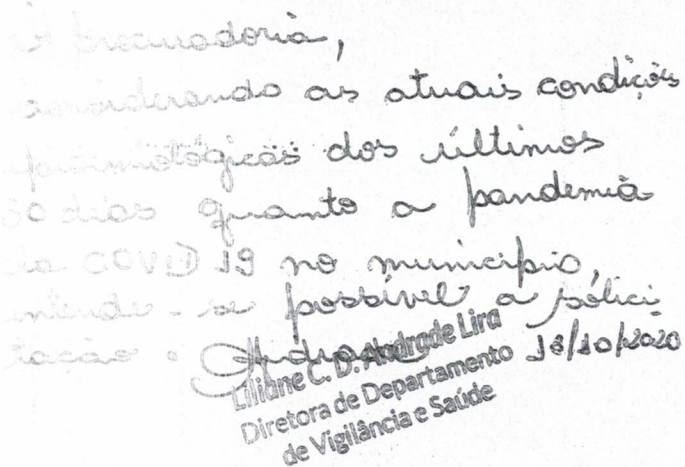 À procuradoria,
considerando as atuais condições
epidemiológicas dos últimos
30 dias quanto a pandemia
da COVID 19 no município,
entende-se possível a solici
tação.
Liliane C. D. Andrade Lira
Diretora de Departamento
de Vigilância e Saúde
/10/2020